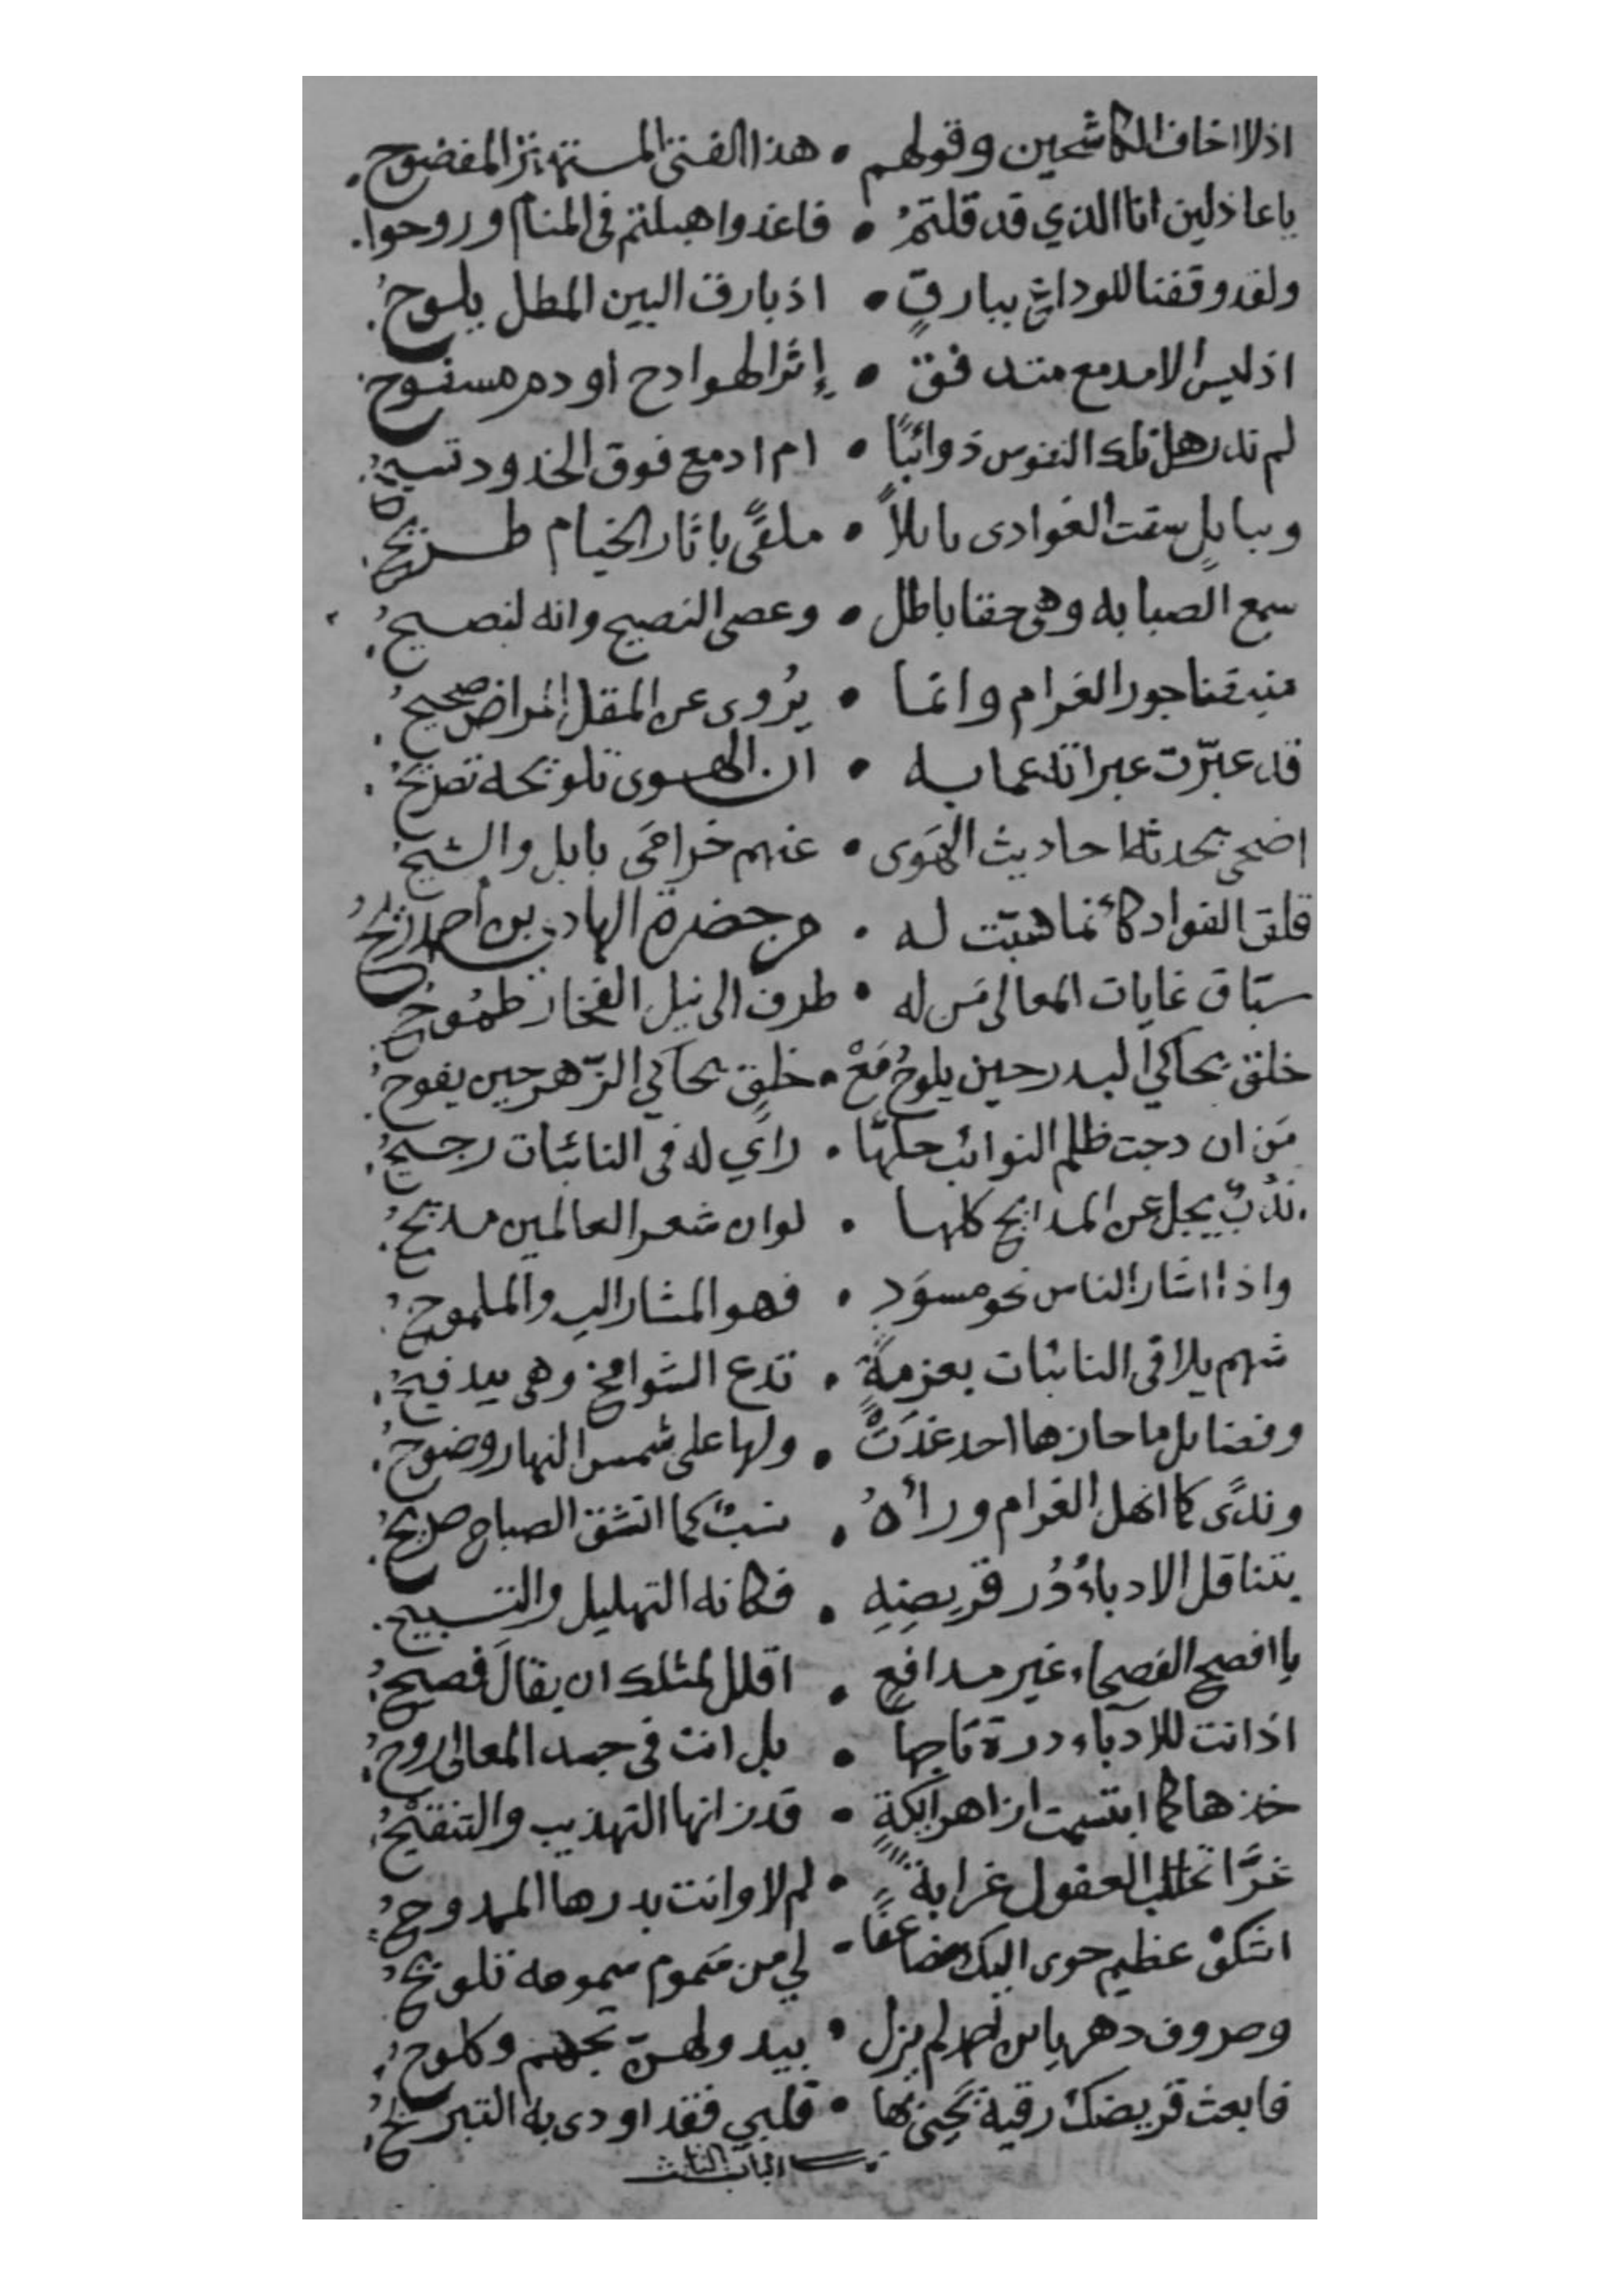 اذلا اخاف الكاشحين وقولهم • هذا الفتى المستهتر المفضوح
ياعاذلين انا الذي قد قلتمُ • فاغدوا هبلتم في المنام وروحوا
ولقد وقفنا للوداع ببارقٍ • اذ بارق البين المطل يلوحُ
اذ ليس الا مدمع متدفق • إثر الهوادج او دم مسفوح
لم ندر هل تلك النفوس ذوائبًا • ام ادمع فوق الخدود تسيحُ
وببابلٍ سقت الغوادى بابلاً • ملقًى باثار الخيام طريحُ
سمع الصبابه وهى حقا باطل • وعصى النصيح وانه لنصيحُ
جور الغرام وانما • يُروى عن المقل المراض صحيحُ
قد عبّرت عبراته عما به • ان الهوى تلويحه تصريحُ
اضحى تحدثه احاديث الهَوى • عنهم خزامَى بابل والشيحُ
قلق الفواد كأنما هبّت له • من حضرة الهادي بن أحمد ريحُ
سبّاق غايات المعالى مَن له • طرف الى نيل الفخار طمُوحُ
خلق يحاكي البدر حين يلوحُ مَعْ • خلقٍ يحاكي الزّهر حين يفوحُ
مَن ان دجت ظلم النوائب حلّها • راي له فى النائبات رجيحُ
ندُبٌ يجل عن المدايح كلها • لوان شعر العالمين مديحُ
واذا اشار الناس نحو مسوَدٍ • فهو المشار اليه والملموحُ
شهم يلاقى النائبات بعزمةٍ • تدع الشوامخ وهى بيد فيحُ
وفضايل ما حازها احد غدَتْ • ولها على شمس النهار وضوحُ
وندًى كما انهل الغرام ورأهُ • نسبٌ كما انشق الصباح صريحُ
يتناقل الادباءُ دُر قريضِهِ • فكانه التهليل والتسبيحُ
يا افصح الفصحاء غير مدافعٍ • اقلل لمثلك ان يقالَ فصيحُ
اذ انت للادباء درة تاجها • بل انت فى جسد المعالى روحُ
خذها كما ابتسمت ازاهر ايكةٍ • قد زانها التهذيب والتنقيحُ
غرَّا تخلب العقول غرابةً • لم لا وانت بدرها الممدوحُ
اشكوْ عظيم جوى اليك مضاعفًا • لي من سَموم سمومه تلويحُ
وصروف دهر يابن احمد لم يزل • يبدو لهنّ تجهم وكلوحُ
فابعث قريضك رقية تُحيى بها • قلبي فقد اودى به التبريحُ
الباب الثالث